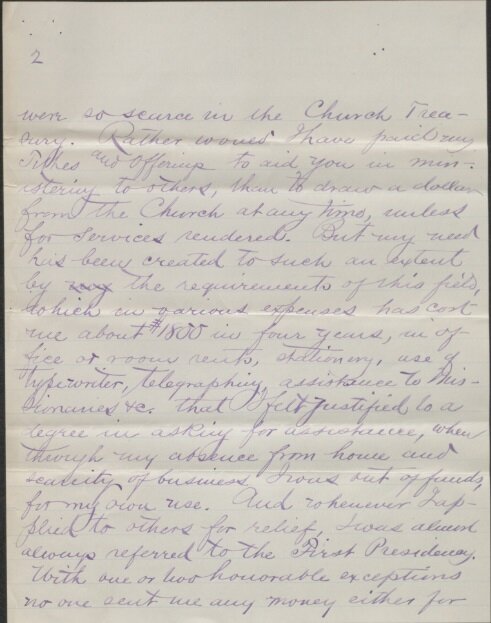 2
were so scarce in the Church Trea-
sury. Rather would I have paid my
Tithes and Offerings to aid you in min-
istering to others, than to draw a dollar
from the Church at any time, unless
for Services rendered. But my need
has been created to such an extent
by the requirements of this field,
which in various expenses has cost
me about $1800 in four years, in of
fice or room rents, stationery, use of
typewriter, telegraphing, assistance to Mis-
sionaries &c. that I felt justified to a
degree in asking for assistance, when
through my absence from home and
scarcity of business I was out of funds,
for my own use. And whenever I ap-
plied to others for relief, I was almost
always referred to the First Presidency.
With one or two honorable exceptions
no one sent me any money either for